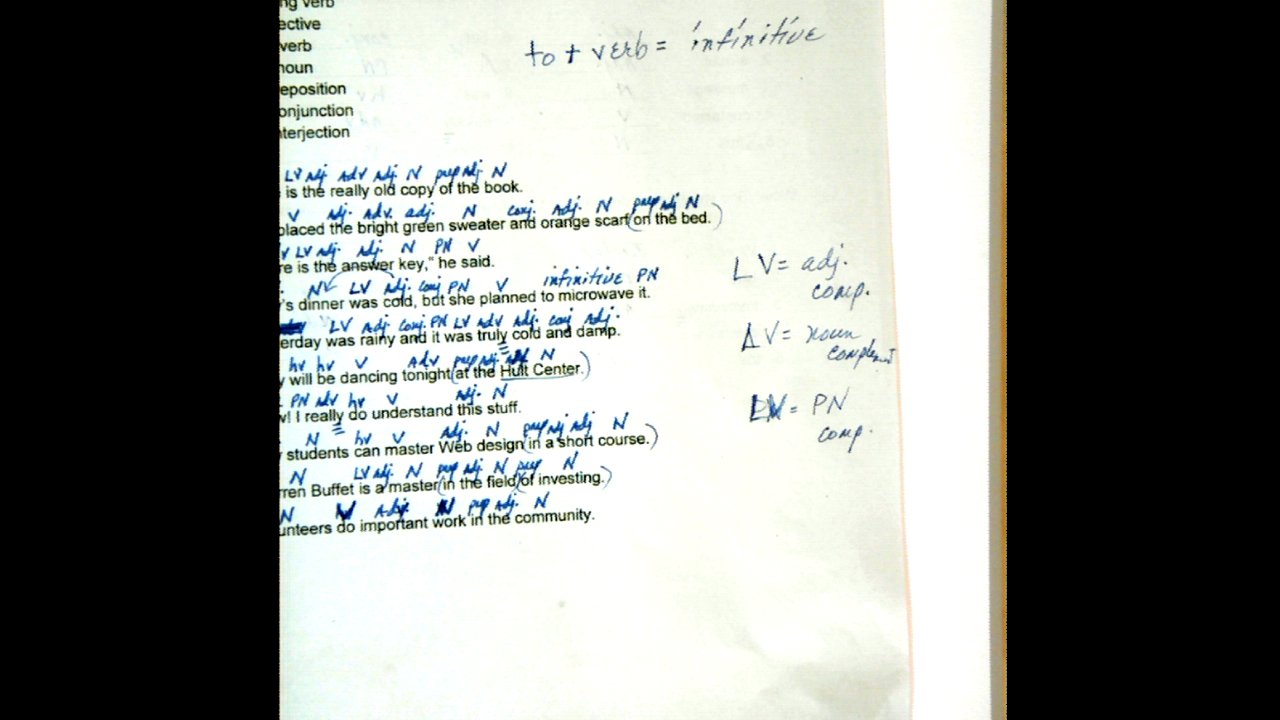 ng verb
ective
verb
noun
to + verb = infinitive
eposition
onjunction
nterjection
LV adj. Adv Adj. N prep Adj N
is the really old copy of the book.
V adj. Adv. adj. N conj. Adj. N prep adj N
placed the bright green sweater and orange scarf (on the bed.)
V LV adj. Adj. N PN V
re is the answer key," he said.
LV = adj. comp.
N LV Adj. conj PN V infinitive PN
's dinner was cold, but she planned to microwave it.
LV Adj conj. PN LV Adv Adj. conj Adj.
erday was rainy and it was truly cold and damp.
LV = noun complement
hv hv V Adv prep adj. N
will be dancing tonight (at the Hult Center.)
PN adv hv V Adj. N
w! I really do understand this stuff.
LV = PN comp.
N hv V Adj. N prep adj adj N
students can master Web design (in a short course.)
N LV adj. N prep adj N prep N
rren Buffet is a master (in the field) (of investing.)
N V Adj. N prep adj. N
unteers do important work in the community.